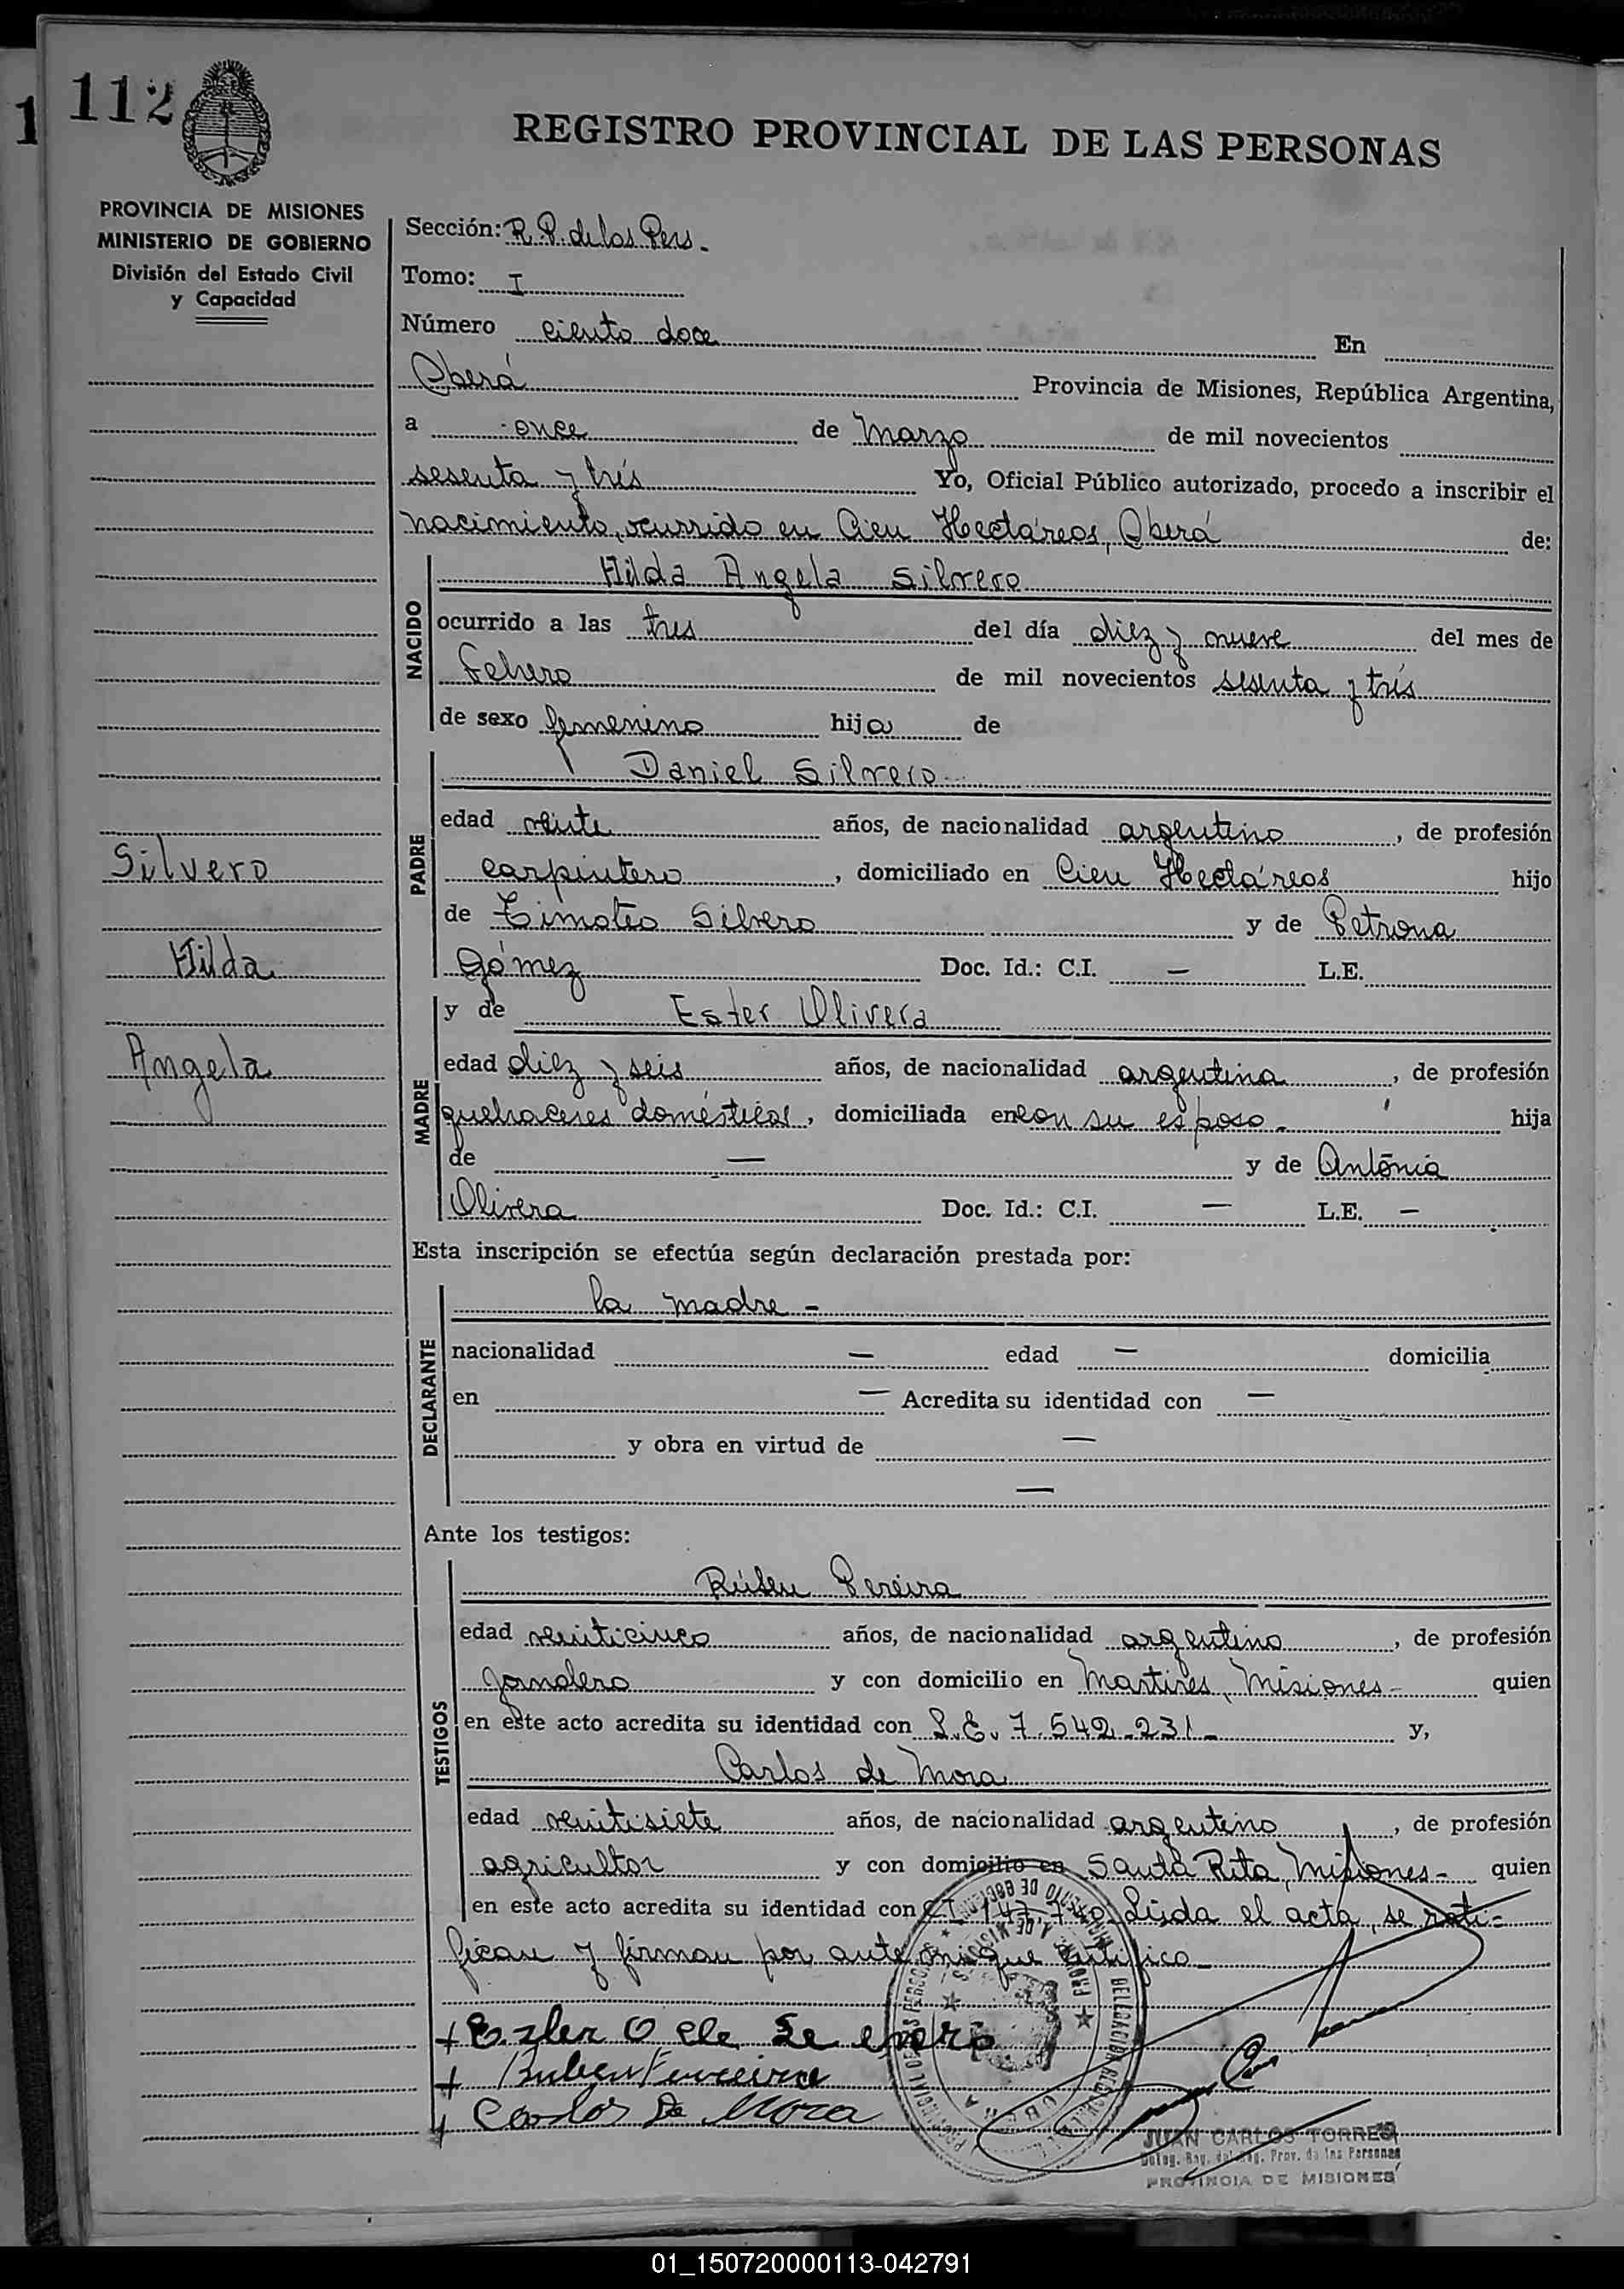 1
112
REGISTRO PROVINCIAL DE LAS PERSONAS
PROVINCIA DE MISIONES
MINISTERIO DE GOBIERNO
División del Estado Civil
y Capacidad
Sección: R. P. de las Pers.
Tomo: I
Número ciento doce En
Oberá Provincia de Misiones, República Argentina,
a once de Marzo de mil novecientos
sesenta y trés Yo, Oficial Público autorizado, procedo a inscribir el
nacimiento, ocurrido en Cien Hectáreas, Oberá de:
NACIDO
Hilda Angela Silvero
ocurrido a las tres del día diez y nueve del mes de
Febrero de mil novecientos sesenta y trés
de sexo femenino hija de
PADRE
Daniel Silvero
edad veinte años, de nacionalidad argentino, de profesión
carpintero, domiciliado en Cien Hectáreas hijo
de Timoteo Silvero y de Petrona
Gómez Doc. Id.: C.I. — L.E.
Silvero
Hilda
Angela
MADRE
y de Ester Olivera
edad diez y seis años, de nacionalidad argentina, de profesión
quehaceres domésticos, domiciliada en con su esposo - hija
de — y de Antónia
Olivera Doc. Id.: C.I. — L.E. —
Esta inscripción se efectúa según declaración prestada por:
DECLARANTE
la madre -
nacionalidad — edad — domicilia
en — Acredita su identidad con —
y obra en virtud de —
—
Ante los testigos:
TESTIGOS
Rúben Pereira
edad veinticinco años, de nacionalidad argentino, de profesión
Jornalero y con domicilio en Martires, Misiones - quien
en este acto acredita su identidad con L.E. 7.542.231- y,
Carlos de Mora
edad veintisiete años, de nacionalidad argentino, de profesión
agricultor y con domicilio en Santa Rita, Misiones - quien
en este acto acredita su identidad con C.I. 147.740 Leida el acta, se rati-
fican y firman por ante mi que certifico -
+ Carlos De Mora
JUAN CARLOS TORRES
Deleg. Reg. del Reg. Prov. de las Personas
PROVINCIA DE MISIONES
01_150720000113-042791